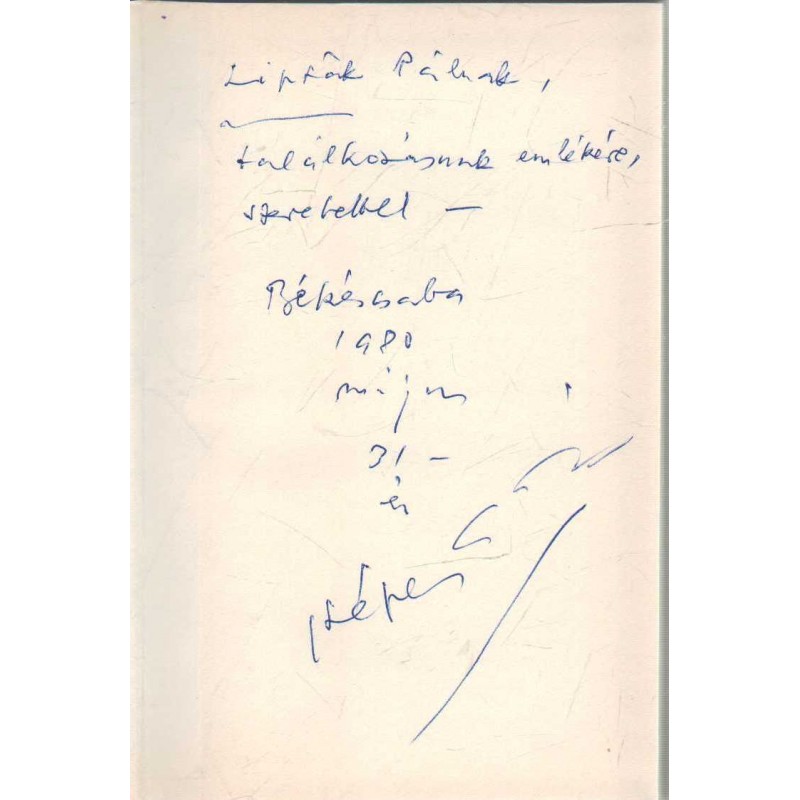 Lipták Pálnak,
találkozásunk emlékére,
szeretettel —
Békéscsaba
1980
május
31 –
én